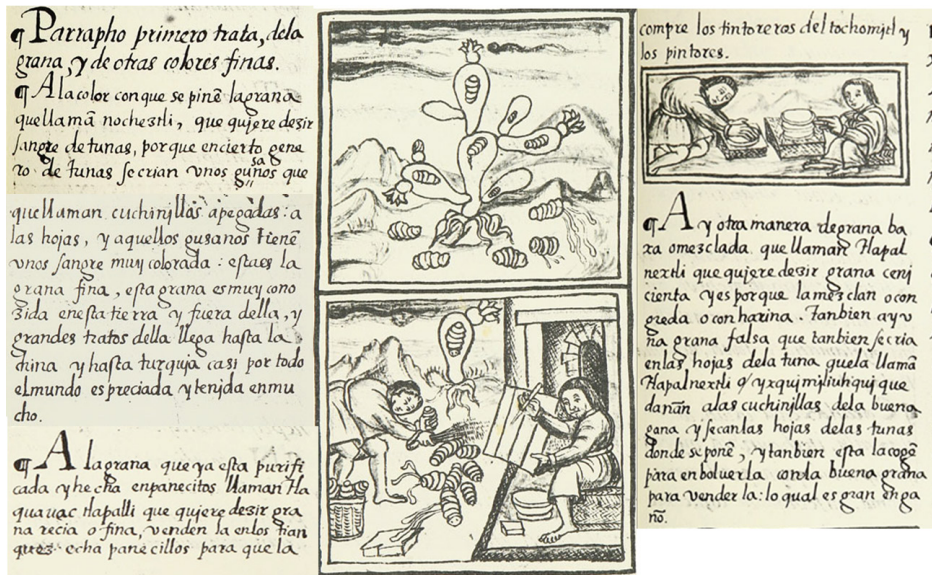 ¶ Parrapho primero trata, dela
grana, y de otras colores finas.
¶ A la color con que se pinē la grana
que llamā nocheztli, que qujere dezir
sangre de tunas, por que en cierto gene
ro de tunas se crian vnos gusanos que
que llaman cuchinjllas apegadas: a
las hojas, y aquellos gusanos tienē
vnos sangre muy colorada: esta es la
grana fina, esta grana es muy cono
zida en esta tierra y fuera della, y
grandes tratos della llega hasta la
china y hasta turquja casi por todo
el mundo es preciada y tenjda en mu
cho.
¶ A la grana que ya esta purifi
cada y hecha en panecitos llaman tla
quavac tlapalli que qujere dezir gra
na recia o fina, venden la en los tian
quez echa panecillos para que la
compre los tintoreros del tochomjtl y
los pintores.
¶ Ay otra manera de grana ba
xa o mezclada que llaman tlapal
nextli que qujere dezir grana cenj
cienta y es por que la mezclan o con
greda o con harina. tanbien ay v
na grana falsa que tanbien se cria
en las hojas de la tuna que la llamā
tlapalnextli
danān a las cuchinjllas de la buena
gana y secan las hojas de las tunas
donde se ponē, y tanbien esta la cogē
para enboluerla con la buena grana
para vender la: lo qual es gran enga
ño.